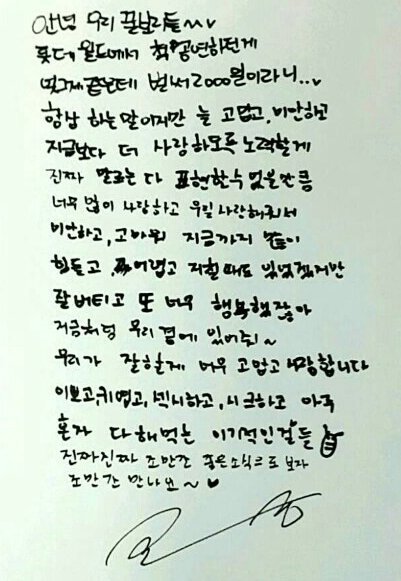 안녕 우리 꿀날리들~
롯데월드에서 첫 공연하던게
엊그제같은데 벌써 2000일이라니..
항상 하는말이지만 늘 고맙고, 미안하고
지금보다 더 사랑하도록 노력할게
진짜 말로는 다 표현할수 없을만큼
너무 많이 사랑하고 우릴 사랑해줘서
미안하고, 고마워 지금까지 많이
힘들고 어렵고 지칠때도 있었겠지만
잘버티고 또 너무 행복했잖아
지금처럼 우리 곁에 있어줘~
우리가 잘할게 너무 고맙고 사랑합니다
이쁘고, 귀엽고, 섹시하고, 시크하고 아주
혼자 다해먹는 이기적인걸들
진짜진짜 조만간 좋은소식으로 보자
조만간 만나요~ ♥